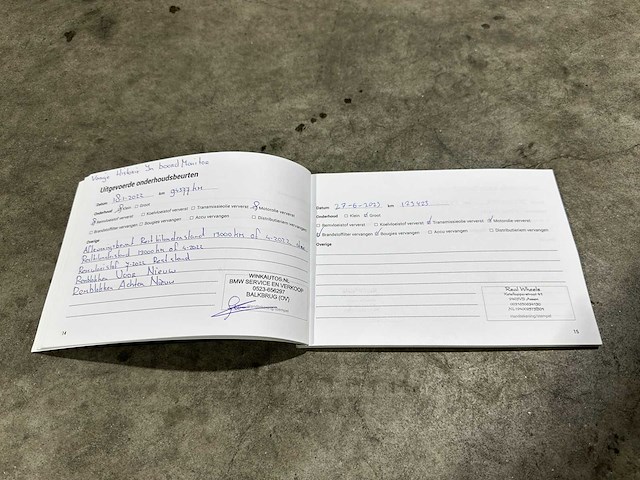 Vorige Historie In boord Monitor
Uitgevoerde onderhoudsbeurten
Datum 18-1-2022 km
Onderhoud Klein Groot
Remvloeistof ververst Koelvloeistof ververst Transmissieolie ververst Motorolie ververst
Brandstoffilter vervangen Bougies vervangen Accu vervangen Distributieriem vervangen
Overige
13000 km of 4-2022
13000 km of 4-2022
7-2022 Reststand
Remblokken Voor Nieuw
Remblokken Achter Nieuw
WINKAUTOS.NL
BMW SERVICE EN VERKOOP
0523-656297
BALKBRUG (OV)
14
Datum 27-6-2023 km
Onderhoud Klein Groot
Remvloeistof ververst Koelvloeistof ververst Transmissieolie ververst Motorolie ververst
Brandstoffilter vervangen Bougies vervangen Accu vervangen Distributieriem vervangen
Overige
Real Wheels
Handtekening/stempel
15